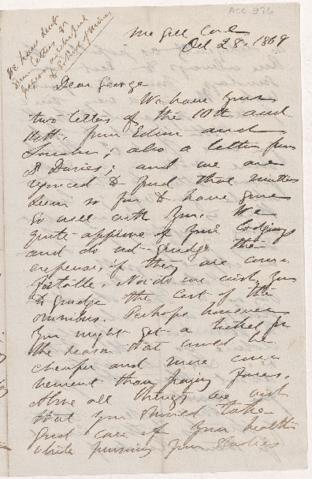 ACC 976
We have sent
your letters to
McGill Coll
Oct 28. 1869
Dear George
We have your
two letters of the 10th and
from Edinr and
London; also a letter from
D Davies; and we are
rejoiced to find that matters
seem so far to have gone
so well with you. We
quite approve of your lodgings
and do not grudge the
expense, if they are com
fortable. Nor do we wish you
to grudge the cost of the
omnibus. Perhaps however
you might get a ticket for
the season that would be
cheaper and more con
venient than paying fares.
Above all things we wish
that you should take
great care of your health
while pursuing your studies